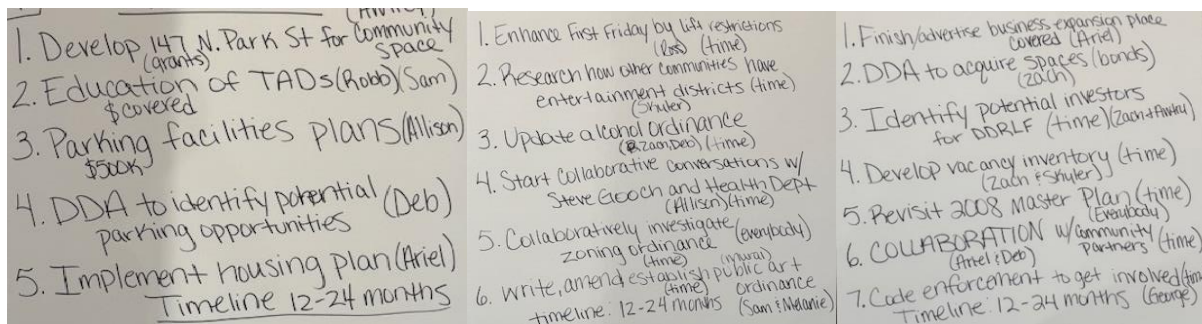 1. Develop 147 N. Park St for Community
(grants) space
2. Education of TADs (Robb) (Sam)
$ covered
3. Parking facilities plans (Allison)
$500K
4. DDA to identify potential (Deb)
parking opportunities
5. Implement housing plan (Ariel)
Timeline 12-24 months
1. Enhance First Friday by lift restrictions
(time)
2. Research how other communities have
entertainment districts (time)
(Skyler)
3. Update alcohol ordinance
(time)
4. Start Collaborative Conversations w/
Steve Gooch and Health Dept
(Allison) (time)
5. Collaboratively investigate (everybody)
zoning ordinance
(time) (mural)
6. Write, amend, establish public art
(time) ordinance
timeline: 12-24 months (Sam & Melanie)
1. Finish/advertise business expansion place
covered (Ariel)
2. DDA to acquire spaces (bonds)
(Zach)
3. Identify potential investors
for DDRLF (time)
4. Develop vacancy inventory (time)
(Zach & Skyler)
5. Revisit 2008 Master Plan (time)
(Everybody)
6. COLLABORATION w/ community
(Ariel & Deb) partners (time)
7. Code enforcement to get involved
Timeline: 12-24 months (George)